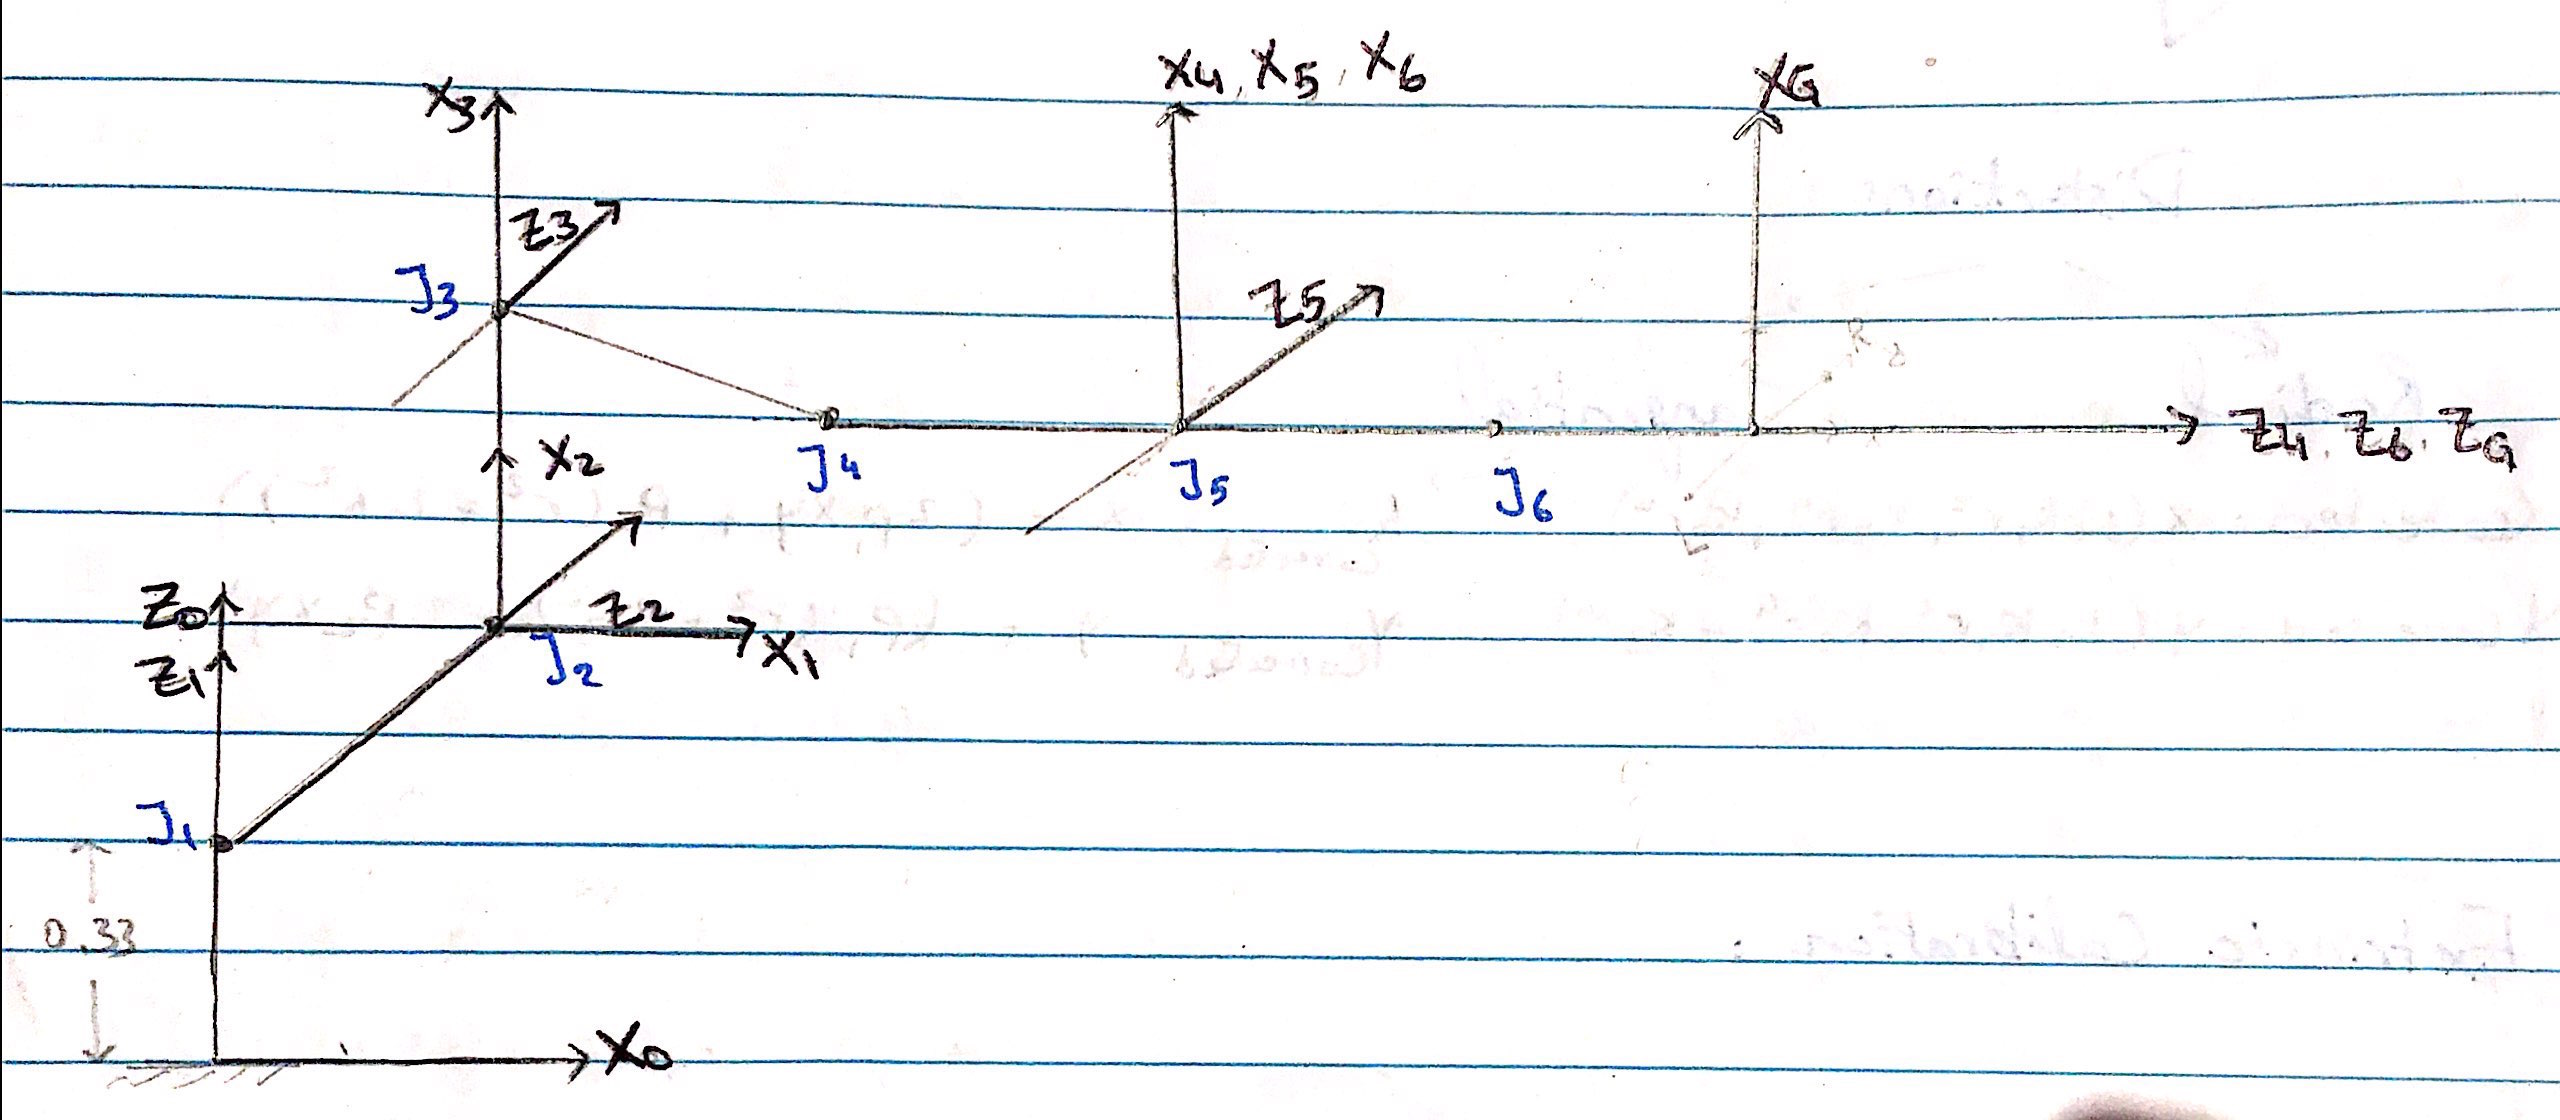 X4, X5, X6
XG
X3
Z3
J3
Z5
J4
J5
J6
Z4, Z6, ZG
X2
Z0
Z2
Z1
J2
X1
J1
0.33
X0